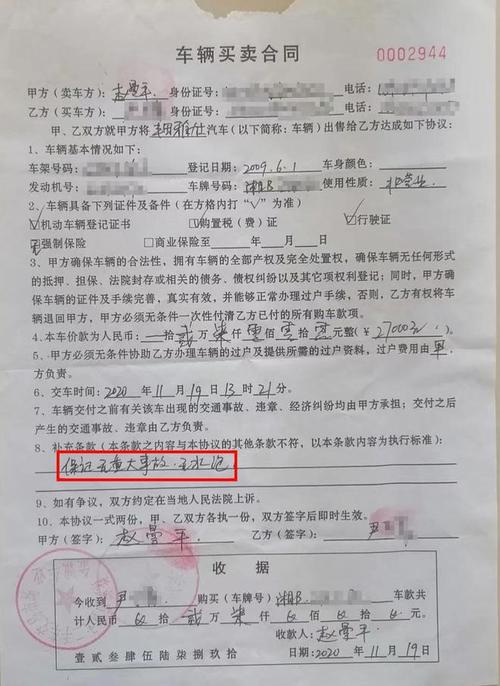 车辆买卖合同
0002944
甲方（卖车方）： 身份证号： 电话：
乙方（买车方）： 身份证号： 电话：
甲、乙双方就甲方将丰田雅仕汽车（以下简称：车辆）出售给乙方达成如下协议：
1、车辆基本情况如下：
车架号码： 登记日期：2009.6.1 车身颜色：
发动机号： 车牌号码：湘B. 使用性质：非营业
2、车辆具备下列证件及备件（在方格内打“√”为准）
☑机动车登记证书 ☑购置税（费）证 ☑行驶证
☑强制保险 □商业保险至 年 月 日
3、甲方确保车辆的合法性，拥有车辆的全部产权及完全处置权，确保车辆无任何形式
的抵押、担保、法院封存或相关的债务、债权纠纷以及其它项权利登记；同时，甲方确
保车辆的证件及手续完善，真实有效，并能够正常办理过户手续，否则，乙方有权将车
辆退回甲方，甲方必须无条件一次性付清乙方已付的所有购车款项。
4.本车价款为人民币：一拾贰万柒仟零佰零拾零元整(￥27000元)
5、甲方必须无条件协助乙方办理车辆的过户及提供所需的过户资料，过户费用由甲
方负责。
6、交车时间：2020年11月19日13时21分。
7、车辆交付之前有关该车出现的交通事故、违章、经济纠纷均由甲方承担；交付之后
产生的交通事故、违章由乙方负责。
8、补充条款（本条款之内容与本协议的其他条款不符，以本条款内容为执行标准）：
保证无重大事故.无水泡.
9、如有争议，双方约定在当地人民法院上诉。
10、本协议一式两份，甲、乙双方各执一份，双方签字后即时生效。
甲方（签字）：赵曼平 乙方（签字）：尹
收 据
今收到尹 购买（车牌号）湘B. 车款共
计人民币 拾贰万柒仟 佰 拾 元。
收款人：赵曼平
壹贰叁肆伍陆柒捌玖拾 日期：2020年11月19日